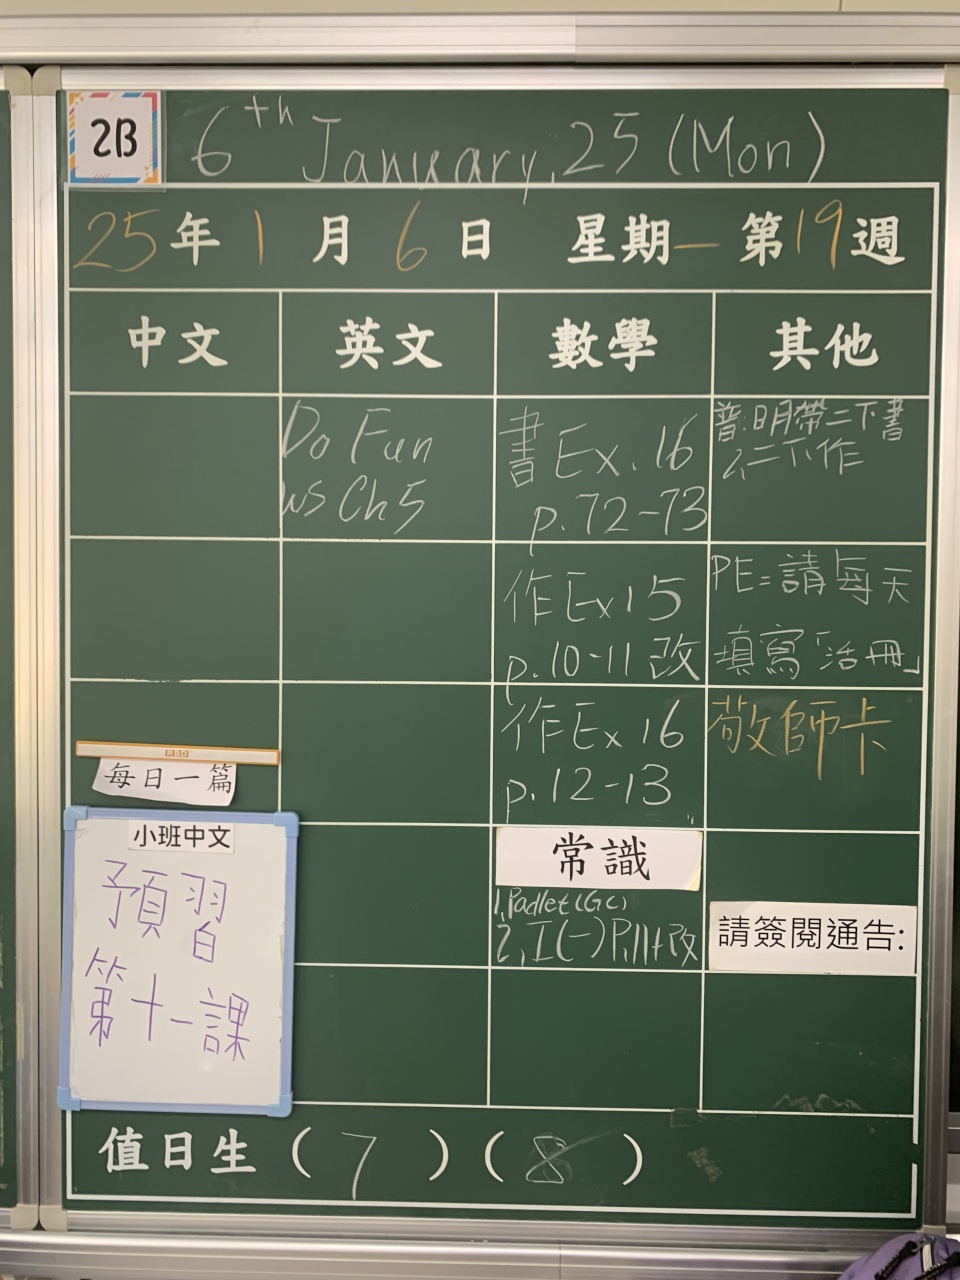 2B
6th January, 25 (Mon)
25年1月6日 星期一 第19週
中文 英文 數學 其他
Do Fun
WS Ch5
書Ex.16
p.72-73
普:明帶二下書
2,二下作
作Ex15
p.10-11改
PE=請每天
填寫「活冊」
作Ex 16
p.12-13
敬師卡
RBD
每日一篇
小班中文
預習
第十一課
常識
1,Padlet(GC)
2,I(一)P,11+改
請簽閱通告:
值日生 (7) (8)